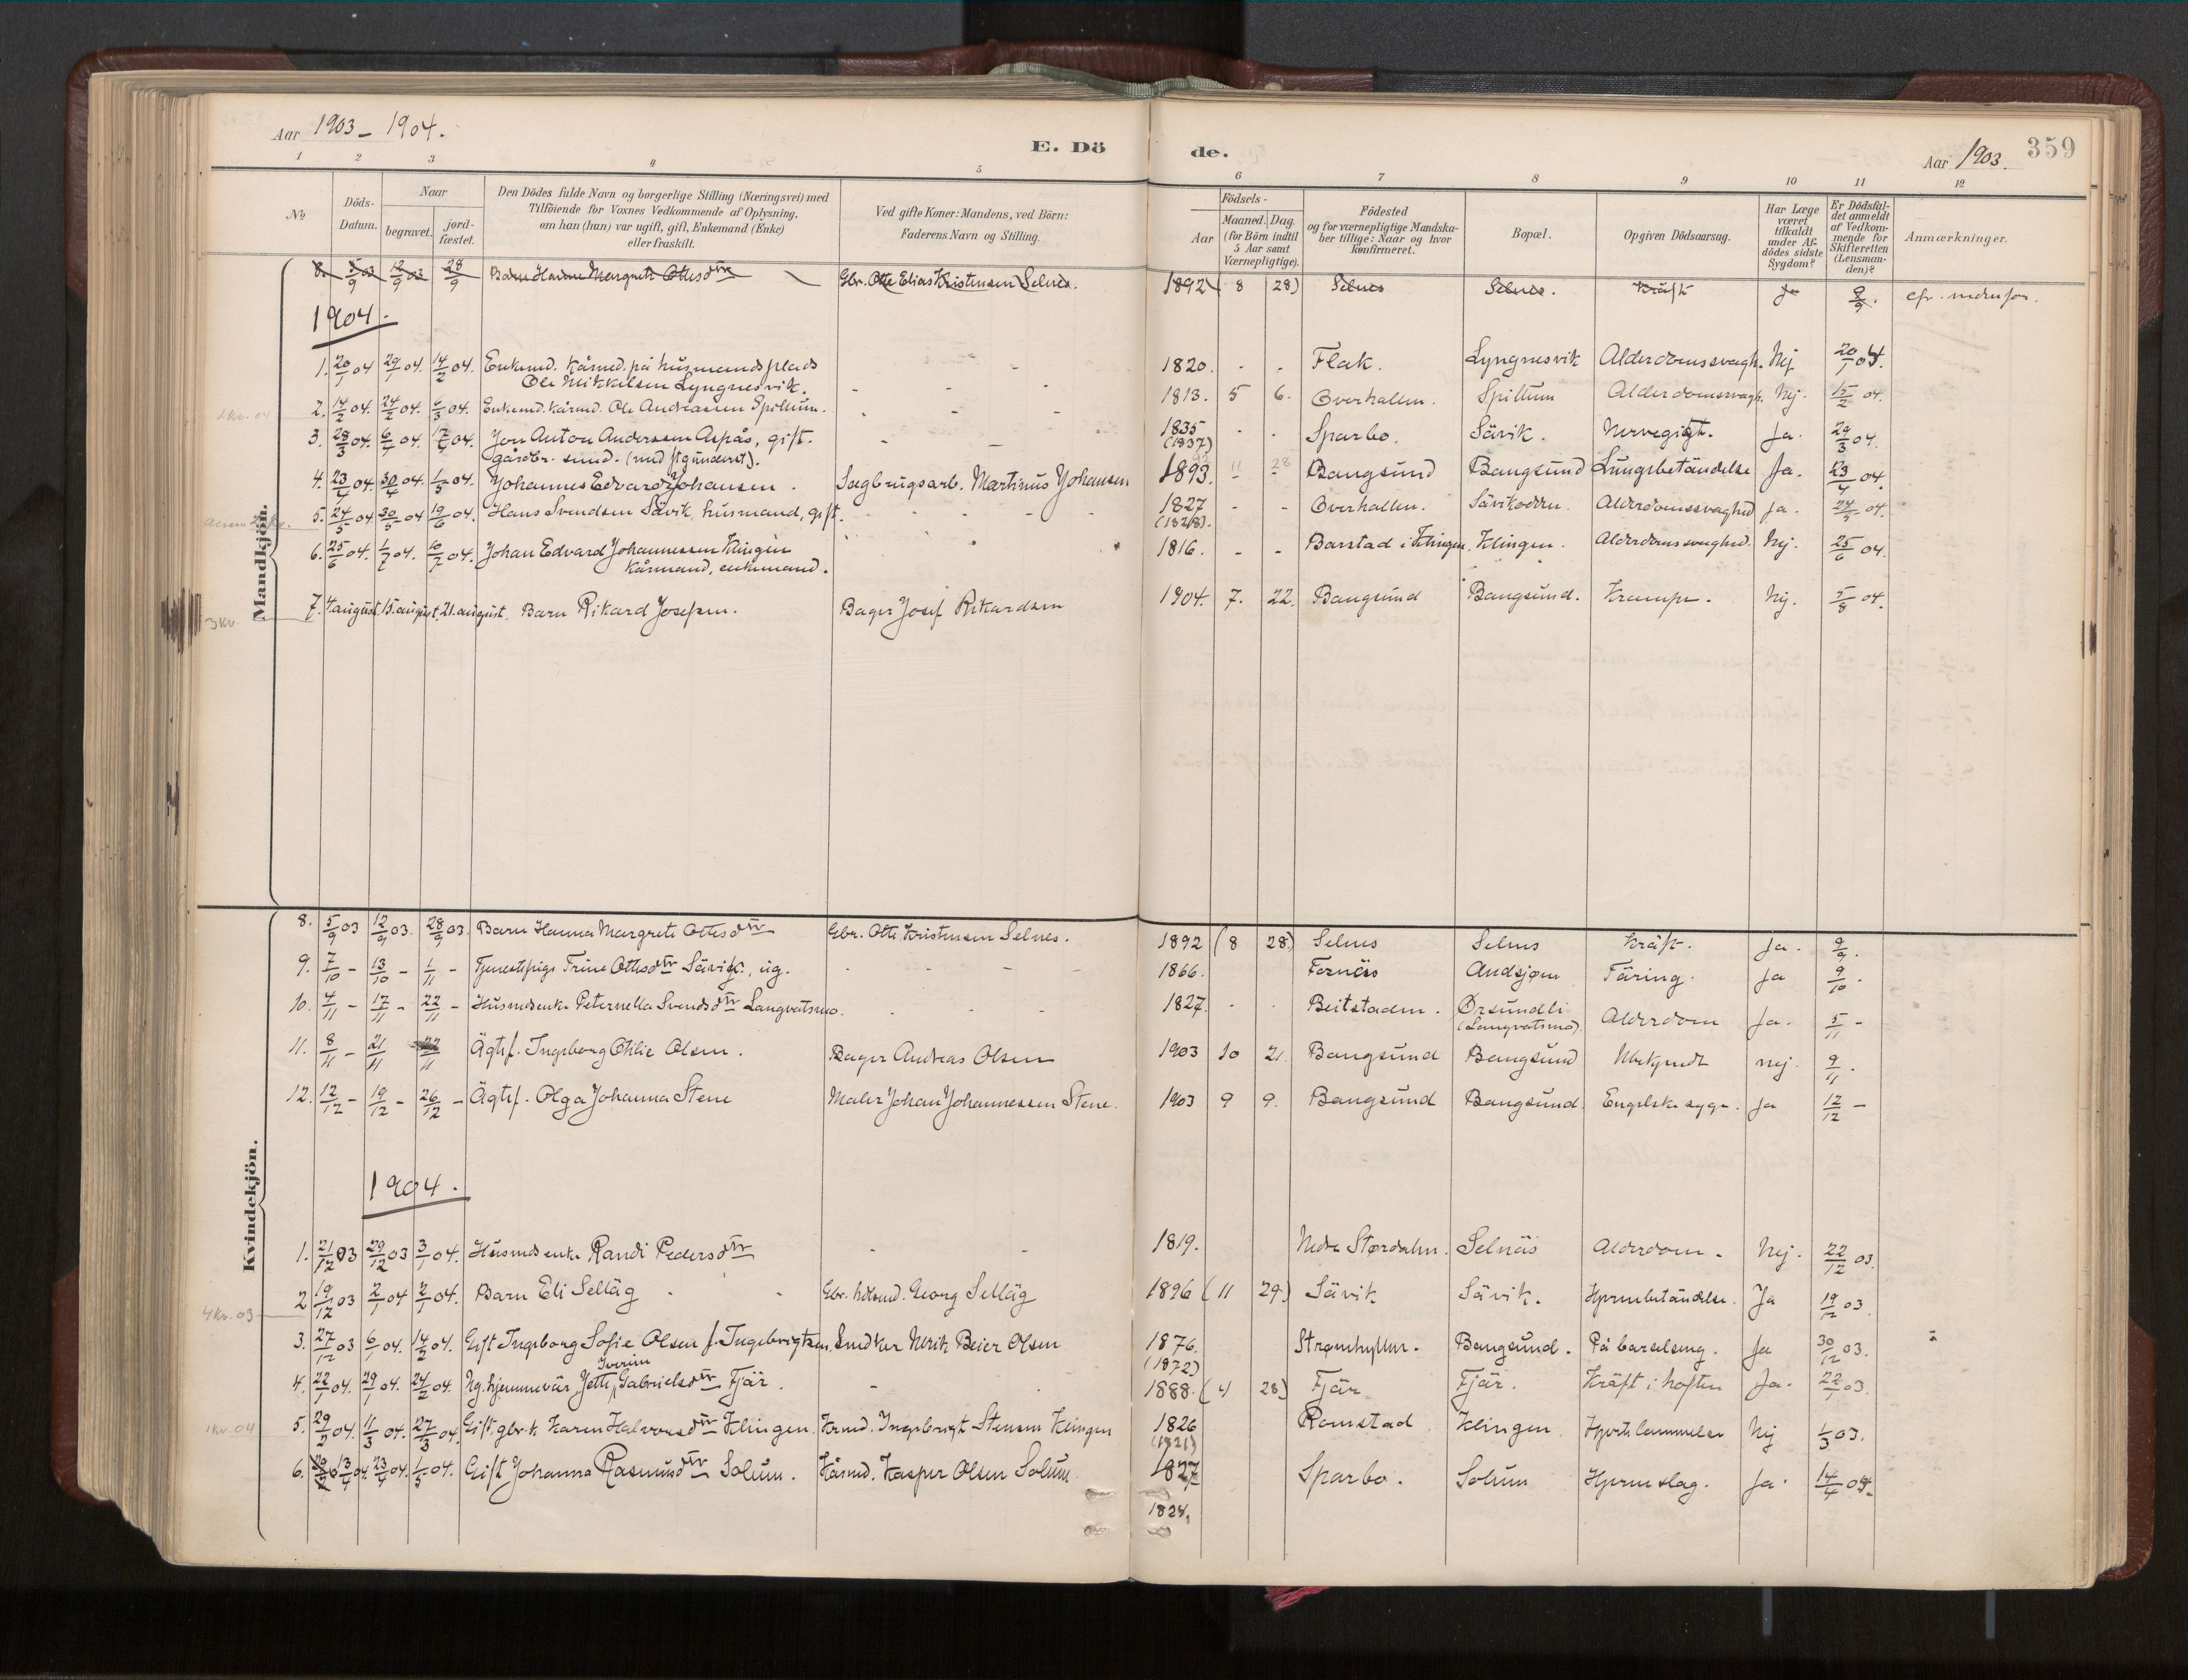 Aar 1903 - 1904.
E. Dö
de.
Aar 1903.
359
1 2 3 4 5 6 7 8 9 10 11 12
No
Döds-Datum.
Naar
begravet.
jord-fæstet.
Den Dödes fulde Navn og borgerlige Stilling (Næringsvei) med
Tilföiende for Voxnes Vedkommende af Oplysning,
om han (hun) var ugift, gift, Enkemand (Enke)
eller fraskilt.
Ved gifte Koner: Mandens, ved Börn:
Faderens Navn og Stilling.
Födsels-
Aar
Maaned. Dag.
(for Börn indtil
5 Aar samt
Værnepligtige).
Födested
og for værnepligtige Mandska-
ber tillige: Naar og hvor
konfirmeret.
Bopæl.
Opgiven Dödsaarsag.
Har Læge
været
tilkaldt
under Af-
dödes sidste
Sygdom?
Er Dödsfal-
det anmeldt
af Vedkom-
mende for
Skifteretten
(Lensman-
den)?
Anmærkninger.
Mandkjön.
8. 5/9 03 12/9 03 28/9 Barn Hanna Margrete Ottesdtr Gbr. Otte Elias Kristensen Selnes. 1892 8 28) Selnes Selnes. Kräft Ja 9/9. cfr. nedenfor.
1904.
1. 20/1 04 29/1 04. 14/2 04. Enkemd. kårmd. på husmandsplads
Ole Mikkelsen Lyngnesvik. 1820. - - Flak. Lyngnesvik Alderdomssvagh. Nej 20/1 04.
1 kv. 04
2. 14/2 04. 24/2 04. 6/3 04. Enkemd. kårmd. Ole Andreassen Spillum. 1813. 5 6. Overhallen. Spillum Alderdomssvagh. Nej. 15/2 04.
3. 28/3 04. 6/4 04. 17/4 04. Jon Anton Anderssen Aspås, gift.
gårdbr. smed. (med ftgunderst). 1835 (1837) - - Sparbo. Sävik. Nervegigt. Ja. 29/3 04.
4. 23/4 04. 30/4 04. 1/5 04. Johannes Edvard Johansen. Sagbrugsarb. Martinus Johansen 1893. 11 28 Bangsund Bangsund Lungebetändelse Ja. 23/4 04.
5. 24/5 04. 30/5 04 19/6 04. Hans Svendsen Sävik, husmand, gift. 1827 (1828). - - Overhallen. Alderdomssvaghed Ja. 27/5 04.
6. 25/6 04. 1/7 04. 10/7 04. Johan Edvard Johannessen Klingen
Kårmand, enkemand. 1816. - - Barstad i Klingen. Klingen. Alderdomssvaghed. Nej. 25/6 04.
3 kv
7. 4. august. 15. august. 21. august. Barn Rikard Josefsen. Bager Josef Rikardsen 1904. 7. 22. Bangsund Bangsund. Krampe. Nej. 5/8 04.
Kvindekjön.
8. 5/9 03 12/9 03. 28/9 03. Barn Hanna Margrete Ottesdtr Gbr. Otte Kristensen Selnes. 1892 (8 28) Selnes Selnes Kräft. Ja. 9/9.
9. 7/10 - 13/10 - 1/11 - Tjenestepige Trine Ottesdtr Sävik, ug. 1866. Fornäss Andsjøen Täring. Ja 9/10.
10. 4/11 - 17/11 - 22/11 - Husmdsenke Peternella Svendsdtr Langvatsmo. 1827. Beitstaden. Ørsundli
(Langvatsmo). Alderdom Ja. 5/11 -
11. 8/11 - 21/11 22/11 Ägtef. Ingeborg Otilie Olsen. Bager Andreas Olsen 1903 10 21. Bangsund Bangsund Ubekjendt nej. 9/11.
12. 12/12 - 19/12 - 26/12 - Ägtef. Olga Johanna Stene Maler Johan Johannessen Stene. 1903 9 9. Bangsund Bangsund. Engelske syge. Ja 12/12 -
1904.
1. 21/12 03 29/12 03 3/1 04. Husmdsenke Randi Pedersdtr 1819. Nedre Størdalen. Selnäs Alderdom. Nej. 22/12 03.
4 kv. 03
2 19/12 03 2/1 04 2/1 04. Barn Eli Selläg Georg Selläg 1896 (11 29.) Sävik Sävik. Hjernebetändelse. Ja 19/12 03.
3. 27/12 03 6/1 04. 14/2 04. Gift Ingeborg Sofie Olsen f. Ingebrigtsen. Snedker Merik Beier Olsen 1876. (1872) Strømhyllen. Bangsund. På barselseng. Ja 30/12 03.
4. 22/1 04. 29/1 04. 24/2 04. Ug. hjemmevär. Jette Iverine Gabrielsdtr Fjär. 1888. (4 28) Fjär Fjär. Kräft i hoften Ja. 22/1 03.
1 kv 04
5. 29/2 04. 11/3 04. 27/3 04. Gift gbr.k Karen Halvorsdtr Klingen. Krmd. Ingebrigt Stensen Klingen 1826 (1821) Romstad Klingen Hjertelammelse Nej 1/3 03.
6. 13/4 04. 23/4 04. 1/5 04. Gift Johanna Rasmusdtr Solum. Kårmd. Kasper Olsen Solum. 1827 Sparbo. Solum Hjerneslag. Ja. 14/4 04.
1824.